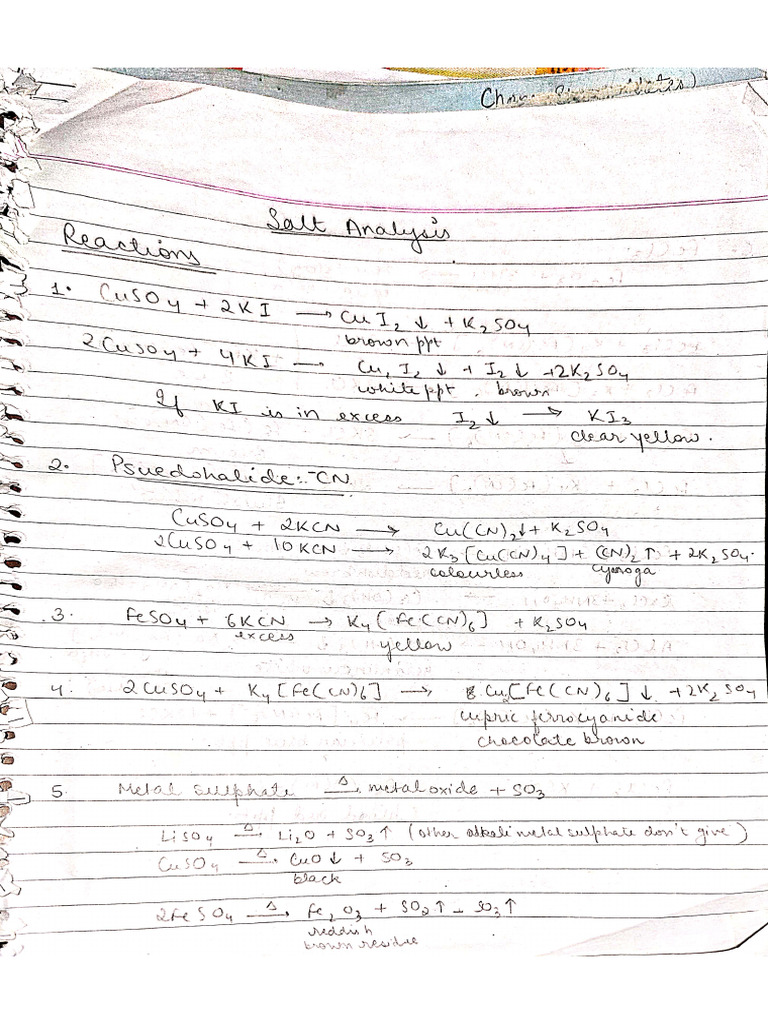 Salt Analysis
Reactions
1. CuSO4 + 2KI ⟶ CuI2 ↓ + K2SO4
brown ppt
2CuSO4 + 4KI ⟶ Cu2I2 ↓ + I2 ↓ + 2K2SO4
white ppt. brown
If KI is in excess I2 ↓ ⟶ KI3
clear yellow.
2. Psuedohalide:- -CN
CuSO4 + 2KCN ⟶ Cu(CN)2 ↓ + K2SO4
2CuSO4 + 10KCN ⟶ 2K3[Cu(CN)4] + (CN)2 ↑ + 2K2SO4.
colourless
3. FeSO4 + 6KCN ⟶ K4[Fe(CN)6] + K2SO4
excess yellow
4. 2CuSO4 + K4[Fe(CN)6] ⟶ Cu2[Fe(CN)6] ↓ + 2K2SO4
cupric ferrocyanide
chocolate brown
5. Metal sulphate Δ⟶ metal oxide + SO3
LiSO4 Δ⟶ Li2O + SO3 ↑ (other alkali metal sulphate don't give)
CuSO4 Δ⟶ CuO ↓ + SO3
black
2FeSO4 Δ⟶ Fe2O3 + SO2 ↑ - SO3 ↑
reddish
brown residue